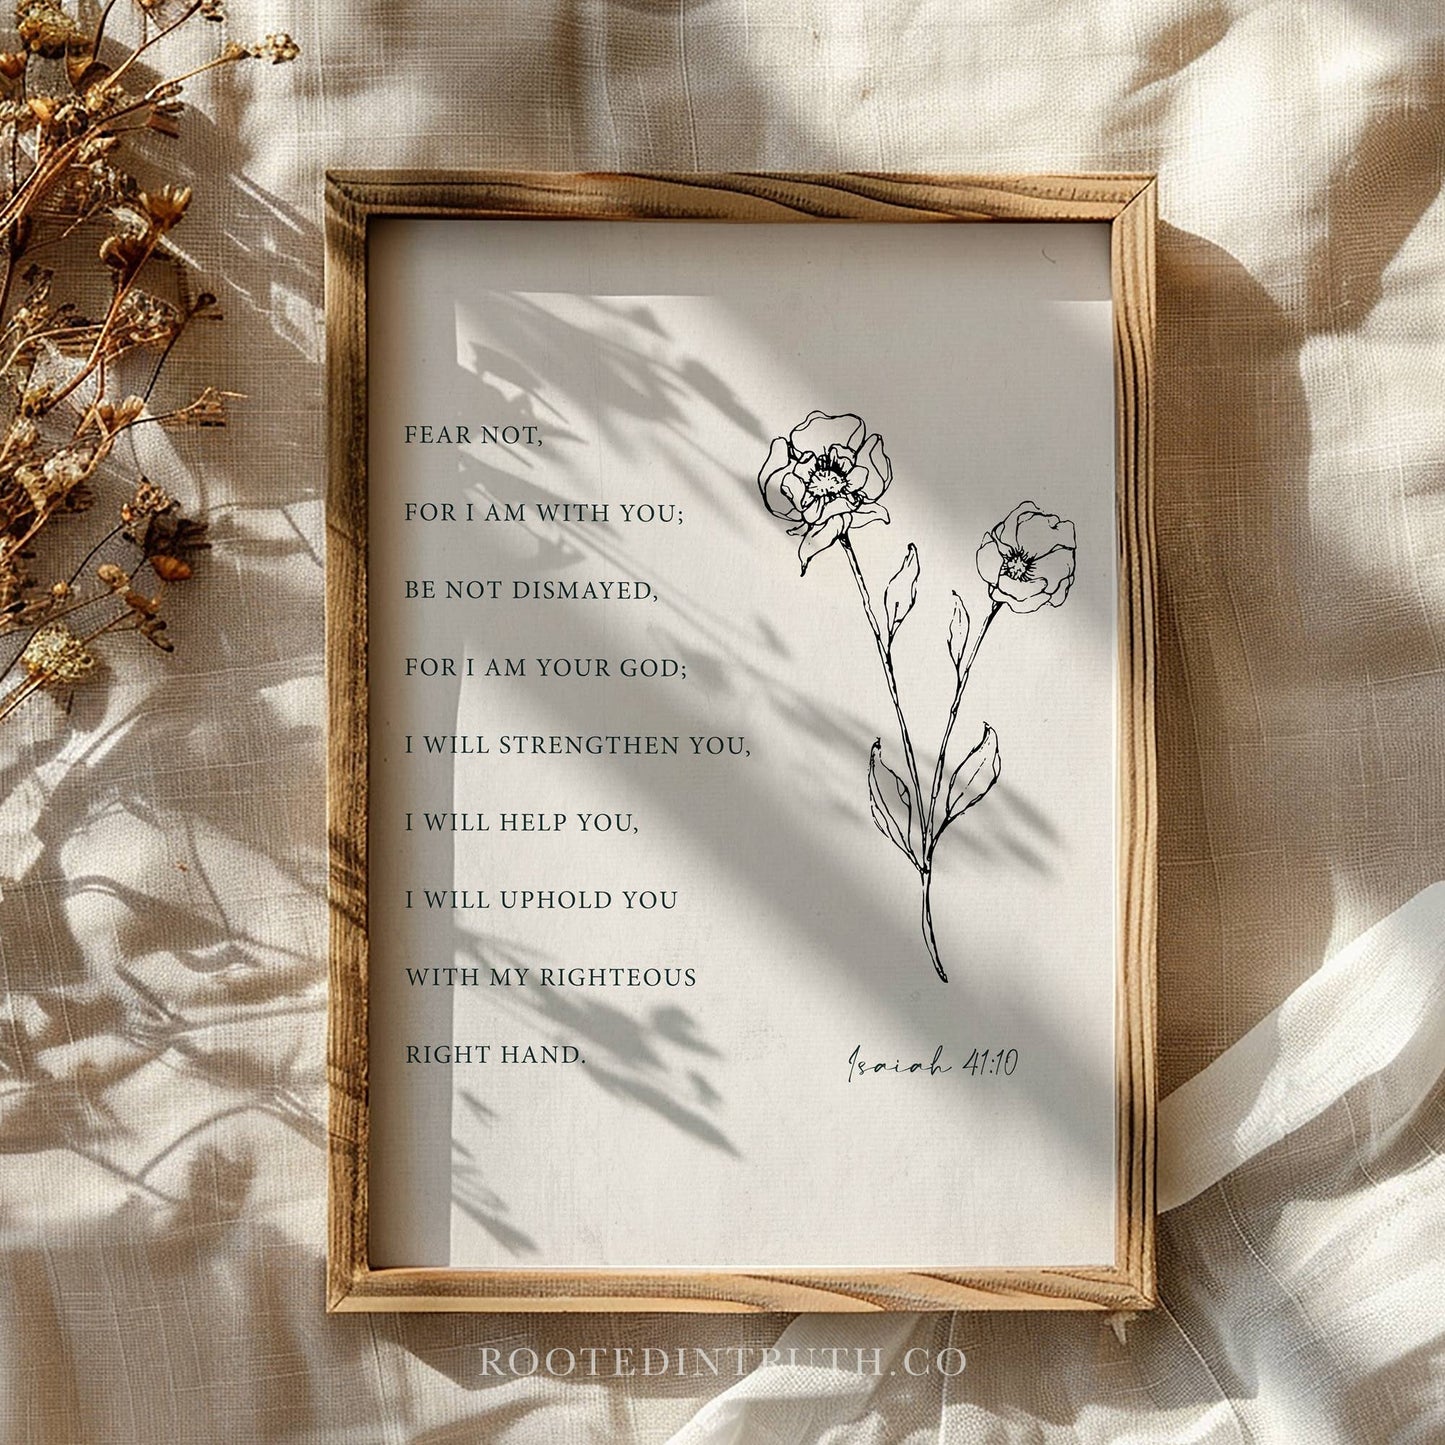 FEAR NOT,
FOR I AM WITH YOU;
BE NOT DISMAYED,
FOR I AM YOUR GOD;
I WILL STRENGTHEN YOU,
I WILL HELP YOU,
I WILL UPHOLD YOU
WITH MY RIGHTEOUS
RIGHT HAND.
Isaiah 41:10
ROOTEDINTRUTH.CO